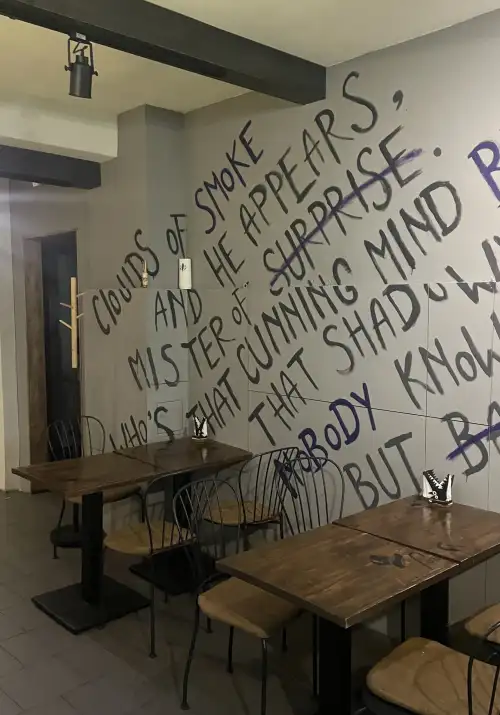 CLOUDS OF SMOKE
AND HE APPEARS,
MISTER OF SURPRISE.
WHO'S THAT CUNNING MIND
THAT SHADOW
NOBODY KNOW
BUT